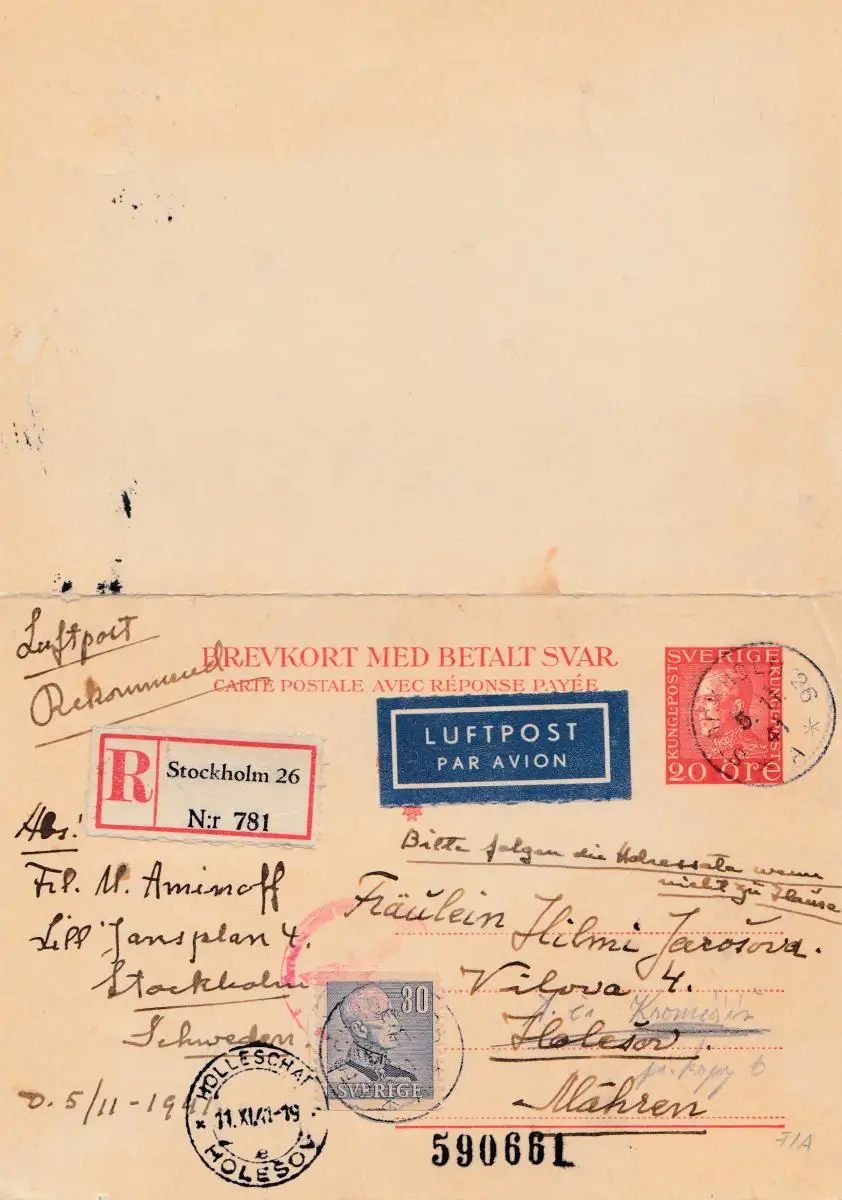 Luftpost
Rekommend
BREVKORT MED BETALT SVAR
CARTE POSTALE AVEC RÉPONSE PAYÉE
SVERIGE
KUNGL·POST
KUNGL·POST
20 ÖRE
26
5. 11. 41
LUFTPOST
PAR AVION
R
Stockholm 26
N:r 781
Abs:
Frl. M. Aminoff
Lill Jansplan 4.
Stockholm
Schweden.
D. 5/11-1941
Bitte folgen die Adressata wenn
nicht zu Hause
Fräulein Hilmi Jarošova.
Vilova 4.
Kroměříž
Holešov.
Mähren
80
SVERIGE
HOLLESCHAU
11.XI.41-19
HOLEŠOV
590661